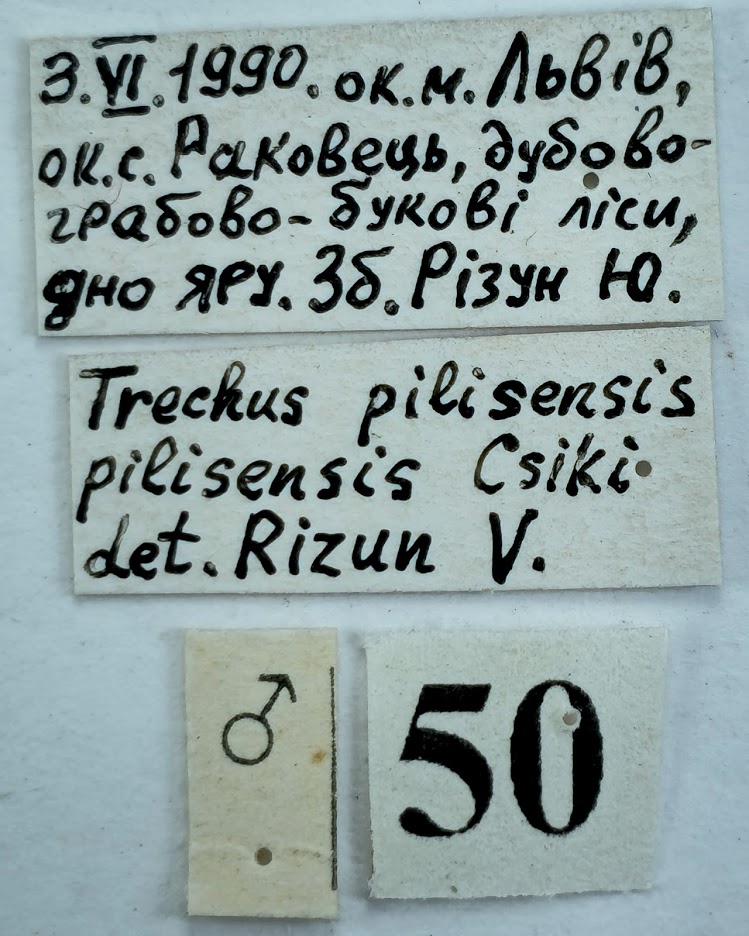 3.VI.1990. ок.м. Львів,
ок.с. Раковець, дубово-
грабово-букові ліси,
дно яру. Зб. Різун Ю.
Trechus pilisensis
pilisensis Csiki
det. Rizun V.
♂
50